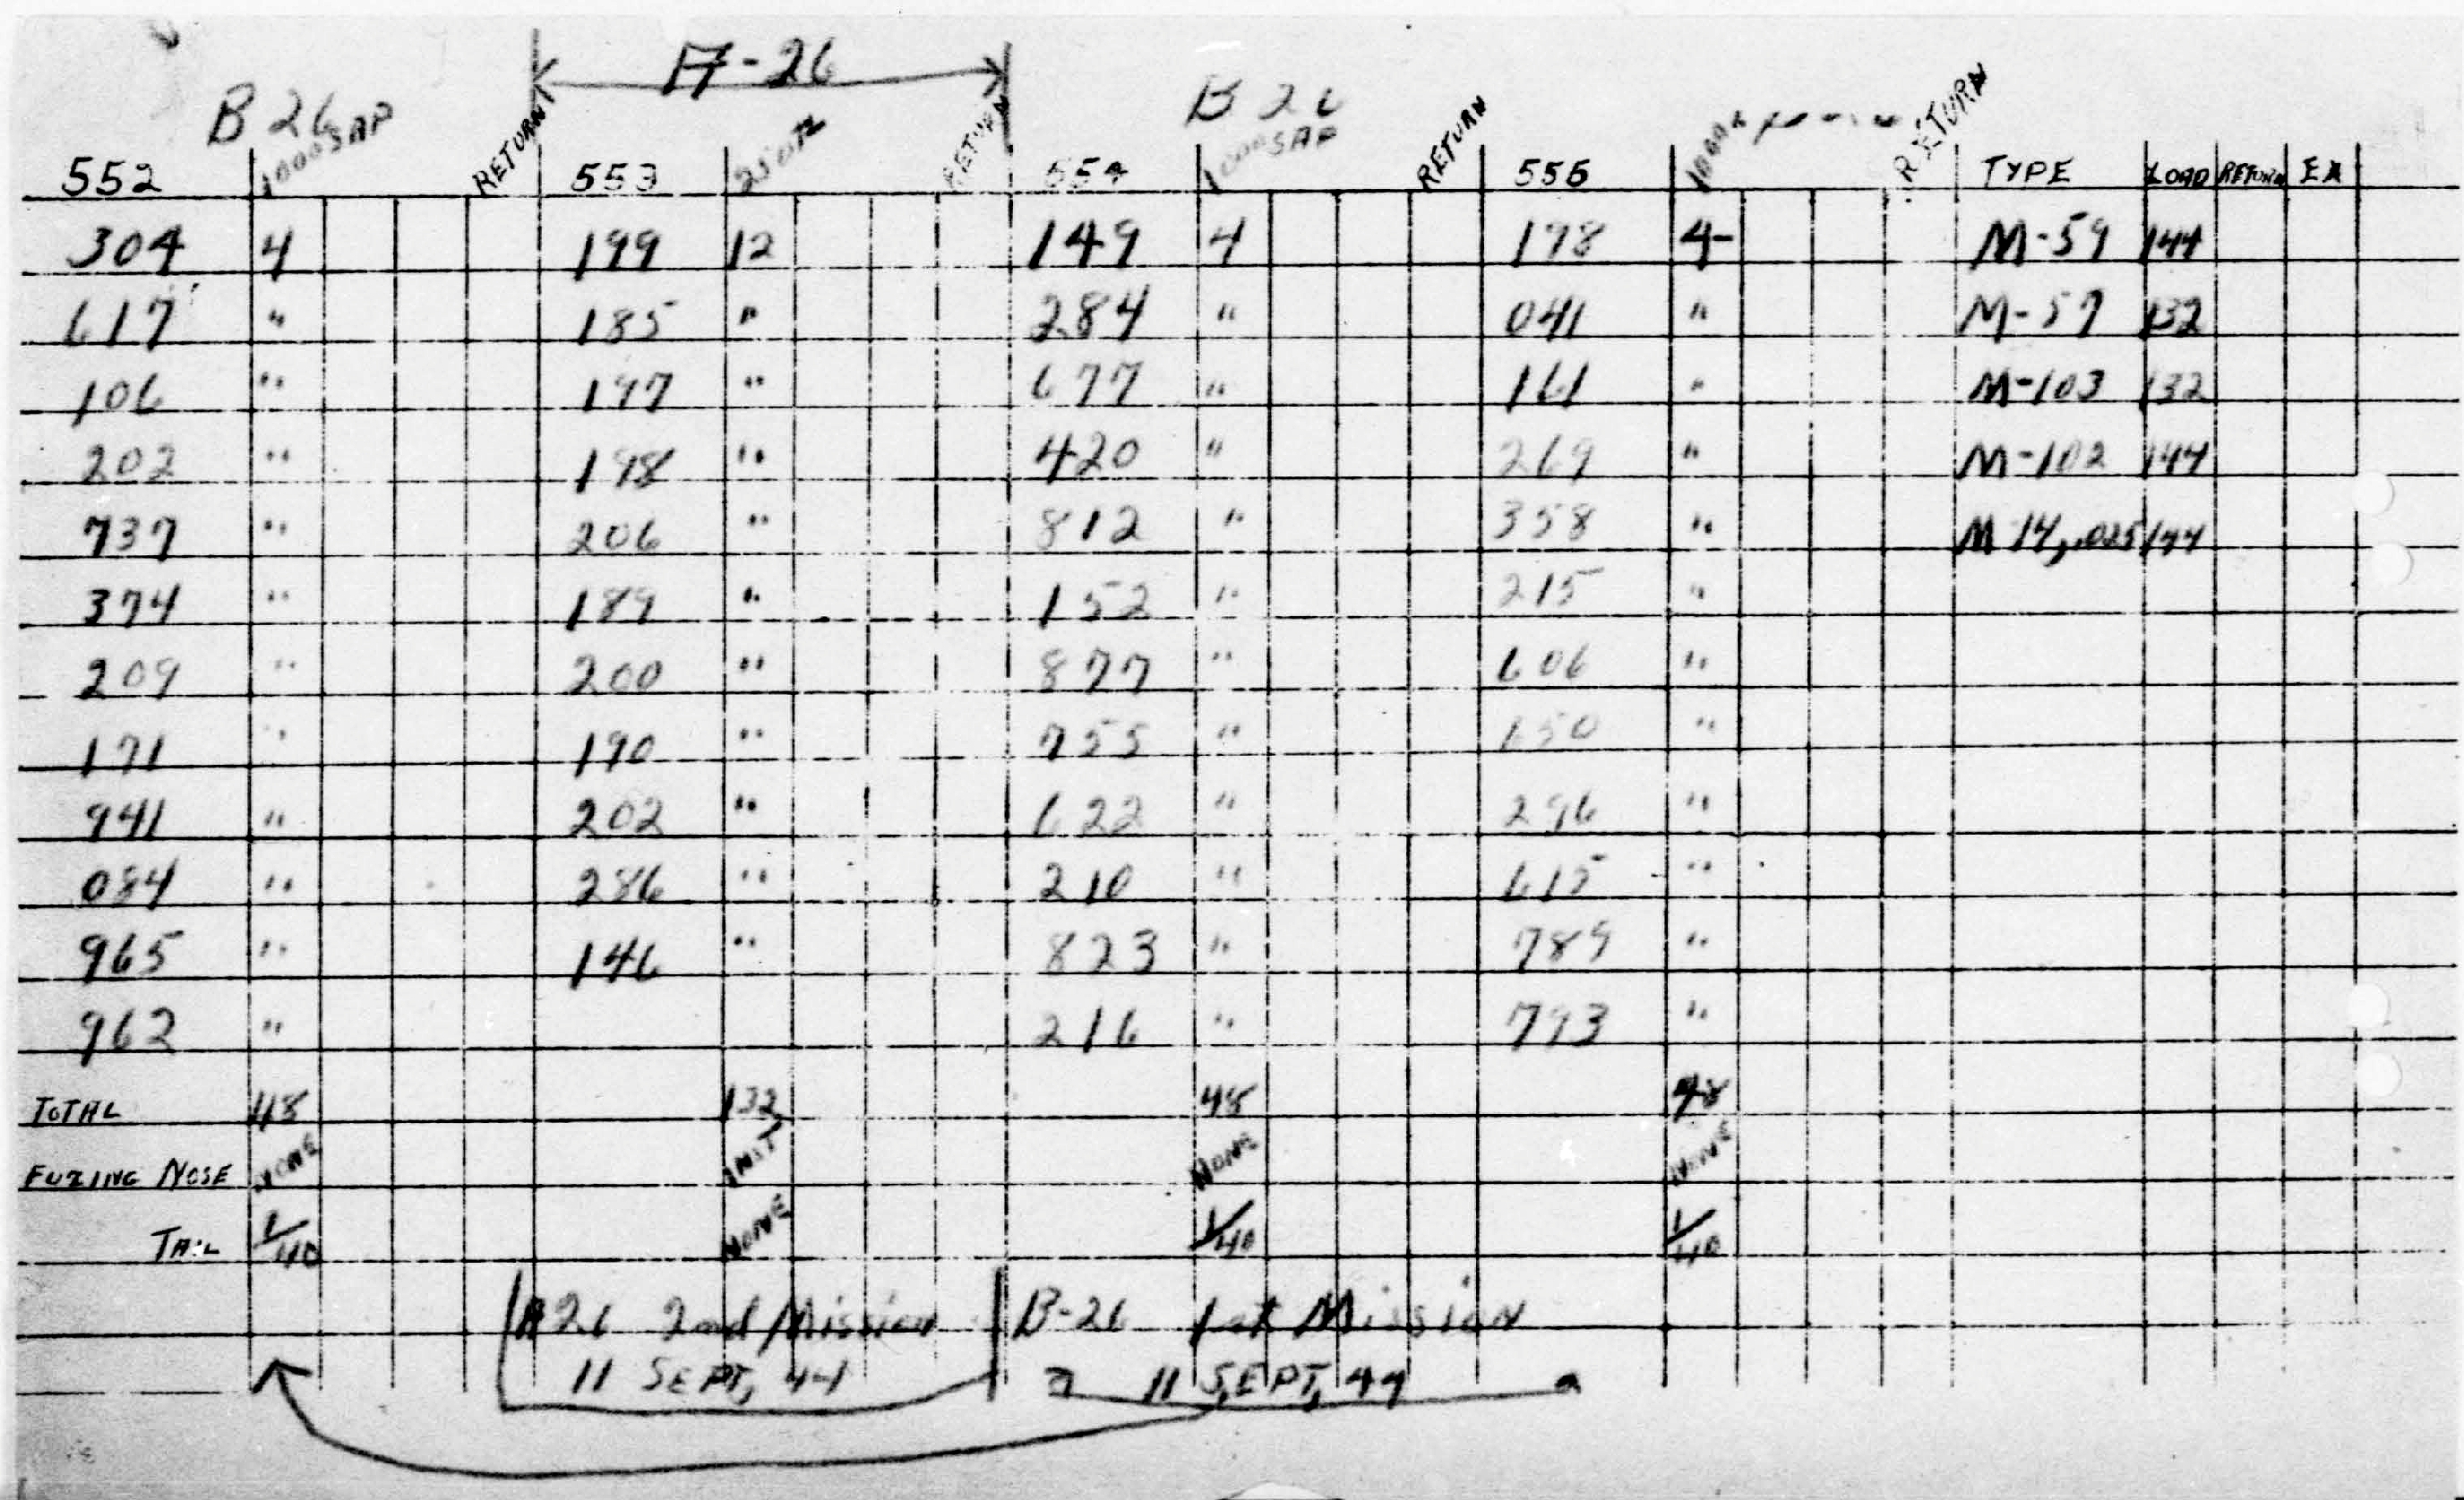 A-26
B 26 B 26
552 1000 SAP RETURN 553 250 RETURN 554 1000 SAP RETURN 555 1000 RETURN TYPE LOAD RETURN EX
304 4 199 12 149 4 178 4 M-59 144
617 " 185 " 284 " 041 " M-57 132
106 " 197 " 677 " 161 " M-103 132
202 " 198 " 420 " 269 " M-102 144
737 " 206 " 812 " 358 " M 14, .025 144
374 " 189 " 152 " 215 "
209 " 200 " 877 " 606 "
171 " 190 " 755 " 150 "
941 " 202 " 622 " 296 "
084 " 286 " 210 " 615 "
965 " 146 " 823 " 789 "
962 " 216 " 793 "
TOTAL 48 132 48 48
FUZING NOSE NONE INST NONE NONE
TAIL 1/40 NONE 1/40 1/40
A26 2nd Mission B-26 1st Mission
11 SEPT, 44 11 SEPT, 44